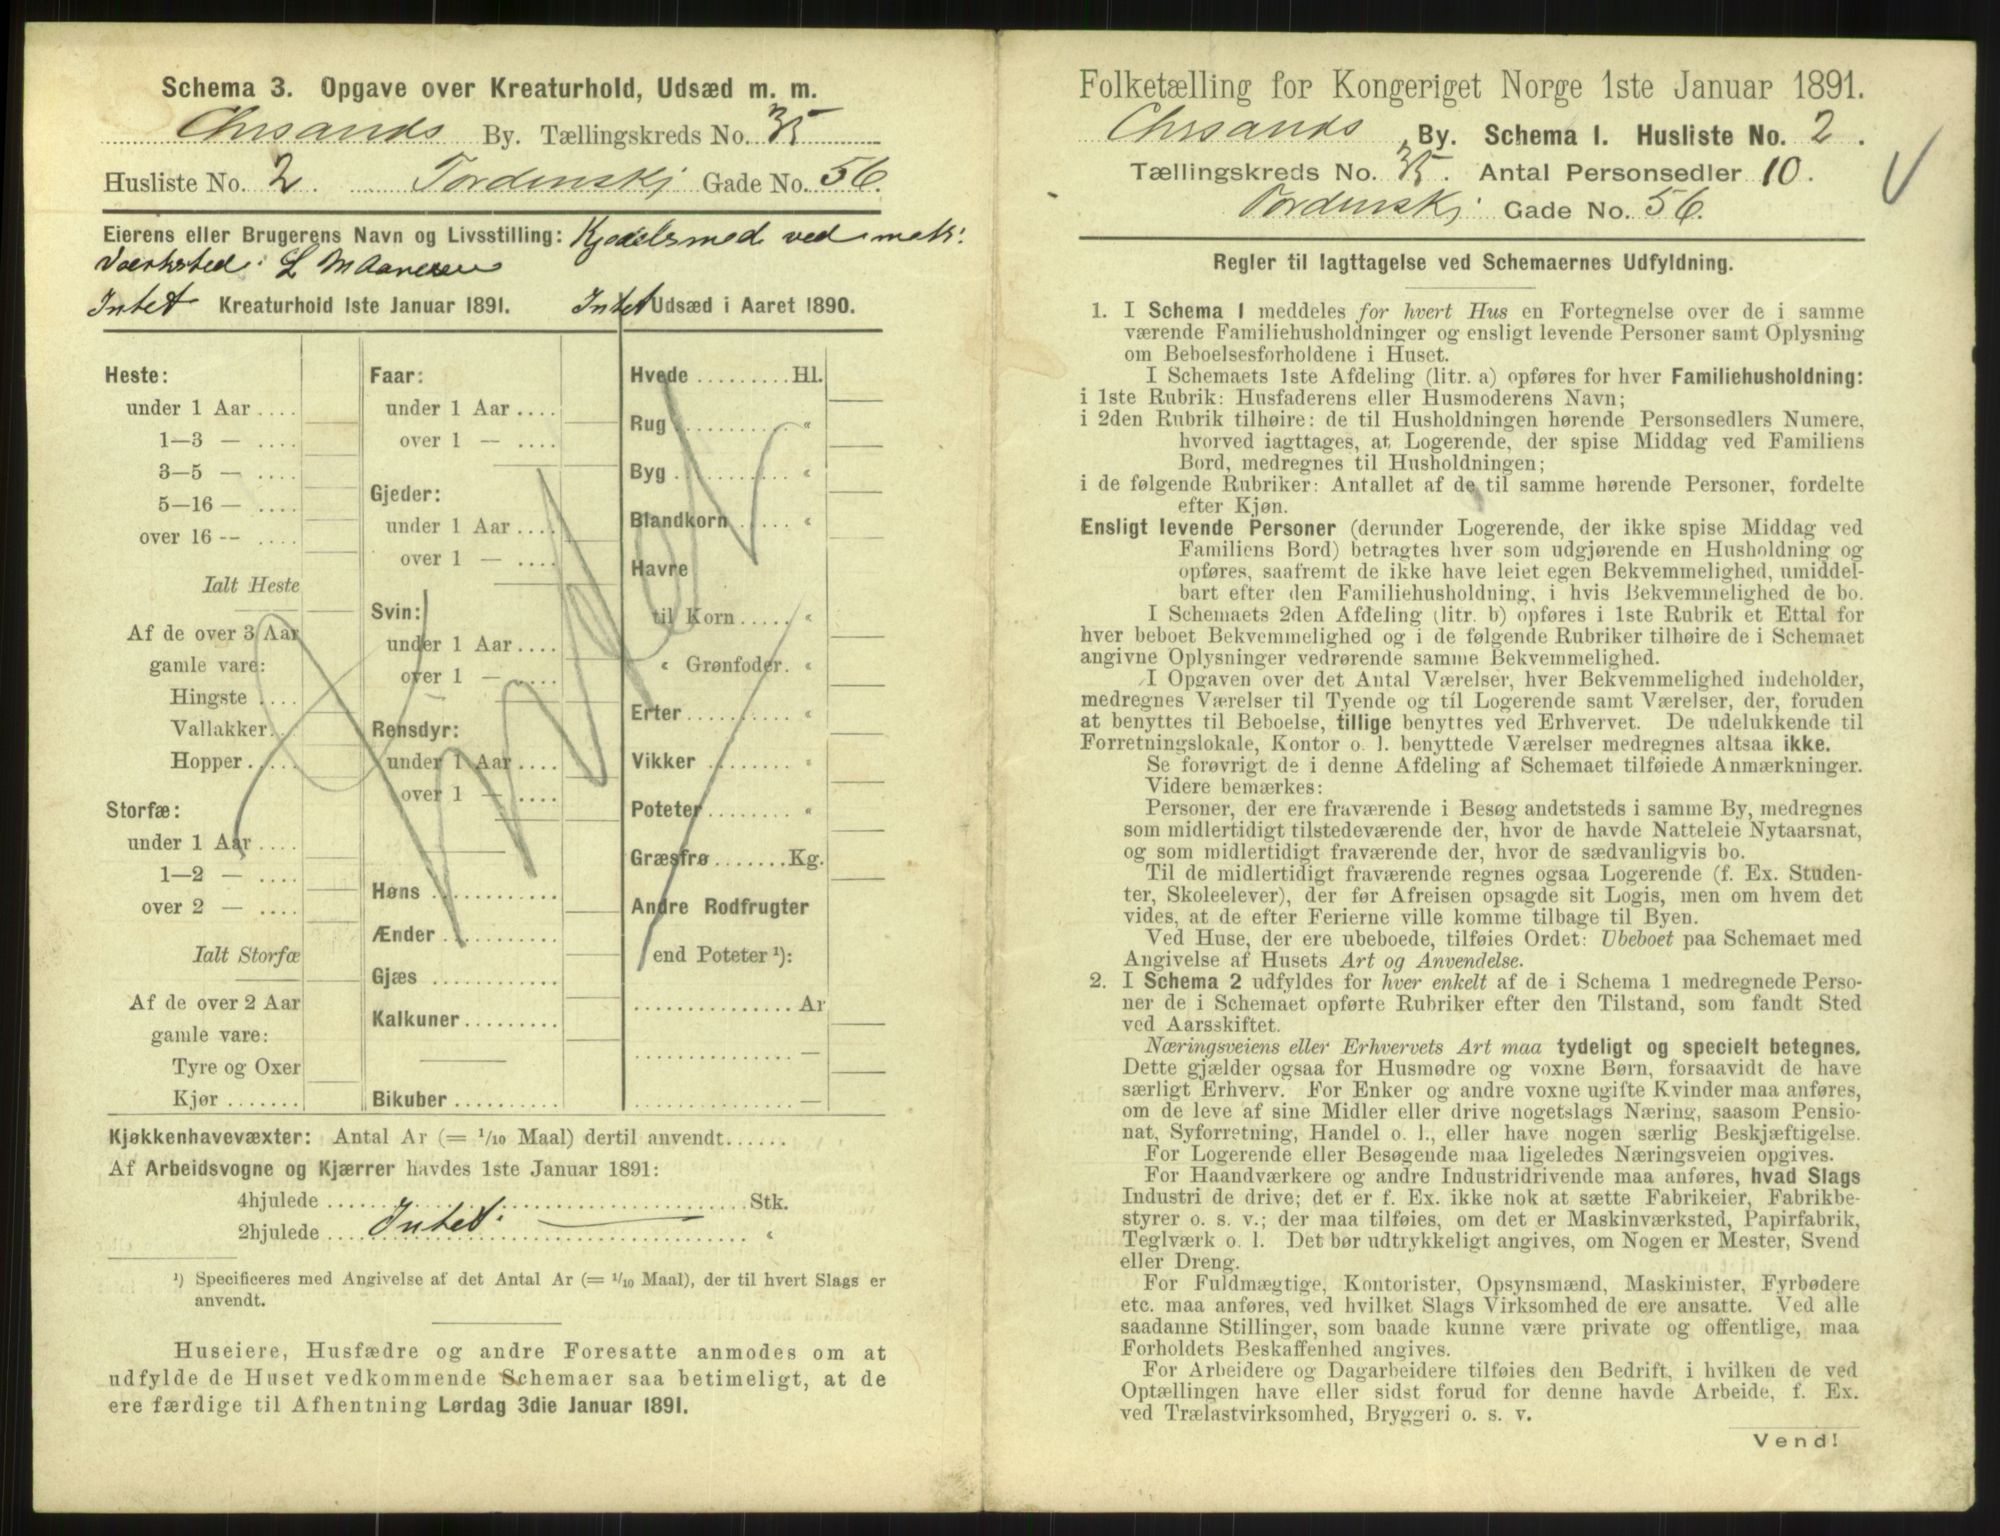 Schema 3. Opgave over Kreaturhold, Udsæd m. m.
Chrsands By. Tællingskreds No. 35
Husliste No. 2. Tordenskj Gade No. 56.
Eierens eller Brugerens Navn og Livsstilling: Kjedelsmed ved mek:
Værksted: L M Aanesen
Intet Kreaturhold 1ste Januar 1891. Intet Udsæd i Aaret 1890.
Heste:
under 1 Aar ....
1—3 — ....
3—5 — ....
5—16 — ....
over 16 -- ....
Ialt Heste
Af de over 3 Aar
gamle vare:
Hingste ....
Vallakker...
Hopper .....
Storfæ:
under 1 Aar ....
1—2 — ....
over 2 — ....
Ialt Storfæ
Af de over 2 Aar
gamle vare:
Tyre og Oxer
Kjør .......
Faar:
under 1 Aar ....
over 1 — ....
Gjeder:
under 1 Aar ....
over 1 — ....
Svin:
under 1 Aar ....
over 1 — ....
Rensdyr:
under 1 Aar ....
over 1 — ....
Høns ............
Ænder ..........
Gjæs ............
Kalkuner.........
Bikuber ..........
Hvede .........Hl.
Rug ........... «
Byg ........... «
Blandkorn ..... «
Havre
til Korn ..... «
« Grønfoder. «
Erter.......... «
Vikker ........ «
Poteter ........ «
Græsfrø .......Kg.
Andre Rodfrugter
end Poteter ¹):
...............Ar
............... —
............... —
Kjøkkenhavevæxter: Antal Ar (= 1/10 Maal) dertil anvendt......
Af Arbeidsvogne og Kjærrer havdes 1ste Januar 1891:
4hjulede ........................................Stk.
2hjulede .... Intet. .................................... «
¹) Specificeres med Angivelse af det Antal Ar (= 1/10 Maal), der til hvert Slags er
anvendt.
Huseiere, Husfædre og andre Foresatte anmodes om at
udfylde de Huset vedkommende Schemaer saa betimeligt, at de
ere færdige til Afhentning Lørdag 3die Januar 1891.
Folketælling for Kongeriget Norge 1ste Januar 1891.
Chrsands By. Schema I. Husliste No. 2.
Tællingskreds No. 35. Antal Personsedler 10.
Tordenskj Gade No. 56.
Regler til Iagttagelse ved Schemaernes Udfyldning.
1. I Schema 1 meddeles for hvert Hus en Fortegnelse over de i samme
værende Familiehusholdninger og ensligt levende Personer samt Oplysning
om Beboelsesforholdene i Huset.
I Schemaets 1ste Afdeling (litr. a) opføres for hver Familiehusholdning:
i 1ste Rubrik: Husfaderens eller Husmoderens Navn;
i 2den Rubrik tilhøire: de til Husholdningen hørende Personsedlers Numere,
hvorved iagttages, at Logerende, der spise Middag ved Familiens
Bord, medregnes til Husholdningen;
i de følgende Rubriker: Antallet af de til samme hørende Personer, fordelte
efter Kjøn.
Ensligt levende Personer (derunder Logerende, der ikke spise Middag ved
Familiens Bord) betragtes hver som udgjørende en Husholdning og
opføres, saafremt de ikke have leiet egen Bekvemmelighed, umiddel-
bart efter den Familiehusholdning, i hvis Bekvemmelighed de bo.
I Schemaets 2den Afdeling (litr. b) opføres i 1ste Rubrik et Ettal for
hver beboet Bekvemmelighed og i de følgende Rubriker tilhøire de i Schemaet
angivne Oplysninger vedrørende samme Bekvemmelighed.
I Opgaven over det Antal Værelser, hver Bekvemmelighed indeholder,
medregnes Værelser til Tyende og til Logerende samt Værelser, der, foruden
at benyttes til Beboelse, tillige benyttes ved Erhvervet. De udelukkende til
Forretningslokale, Kontor o. l. benyttede Værelser medregnes altsaa ikke.
Se forøvrigt de i denne Afdeling af Schemaet tilføiede Anmærkninger.
Videre bemærkes:
Personer, der ere fraværende i Besøg andetsteds i samme By, medregnes
som midlertidigt tilstedeværende der, hvor de havde Natteleie Nytaarsnat,
og som midlertidigt fraværende der, hvor de sædvanligvis bo.
Til de midlertidigt fraværende regnes ogsaa Logerende (f. Ex. Studen-
ter, Skoleelever), der før Afreisen opsagde sit Logis, men om hvem det
vides, at de efter Ferierne ville komme tilbage til Byen.
Ved Huse, der ere ubeboede, tilføies Ordet: Ubeboet paa Schemaet med
Angivelse af Husets Art og Anvendelse.
2. I Schema 2 udfyldes for hver enkelt af de i Schema 1 medregnede Perso-
ner de i Schemaet opførte Rubriker efter den Tilstand, som fandt Sted
ved Aarsskiftet.
Næringsveiens eller Erhvervets Art maa tydeligt og specielt betegnes.
Dette gjælder ogsaa for Husmødre og voxne Børn, forsaavidt de have
særligt Erhverv. For Enker og andre voxne ugifte Kvinder maa anføres,
om de leve af sine Midler eller drive nogetslags Næring, saasom Pensio-
nat, Syforretning, Handel o. l., eller have nogen særlig Beskjæftigelse.
For Logerende eller Besøgende maa ligeledes Næringsveien opgives.
For Haandværkere og andre Industridrivende maa anføres, hvad Slags
Industri de drive; det er f. Ex. ikke nok at sætte Fabrikeier, Fabrikbe-
styrer o. s. v.; der maa tilføies, om det er Maskinværksted, Papirfabrik,
Teglværk o. l. Det bør udtrykkeligt angives, om Nogen er Mester, Svend
eller Dreng.
For Fuldmægtige, Kontorister, Opsynsmænd, Maskinister, Fyrbødere
etc. maa anføres, ved hvilket Slags Virksomhed de ere ansatte. Ved alle
saadanne Stillinger, som baade kunne være private og offentlige, maa
Forholdets Beskaffenhed angives.
For Arbeidere og Dagarbeidere tilføies den Bedrift, i hvilken de ved
Optællingen have eller sidst forud for denne havde Arbeide, f. Ex.
ved Trælastvirksomhed, Bryggeri o. s. v.
Vend!